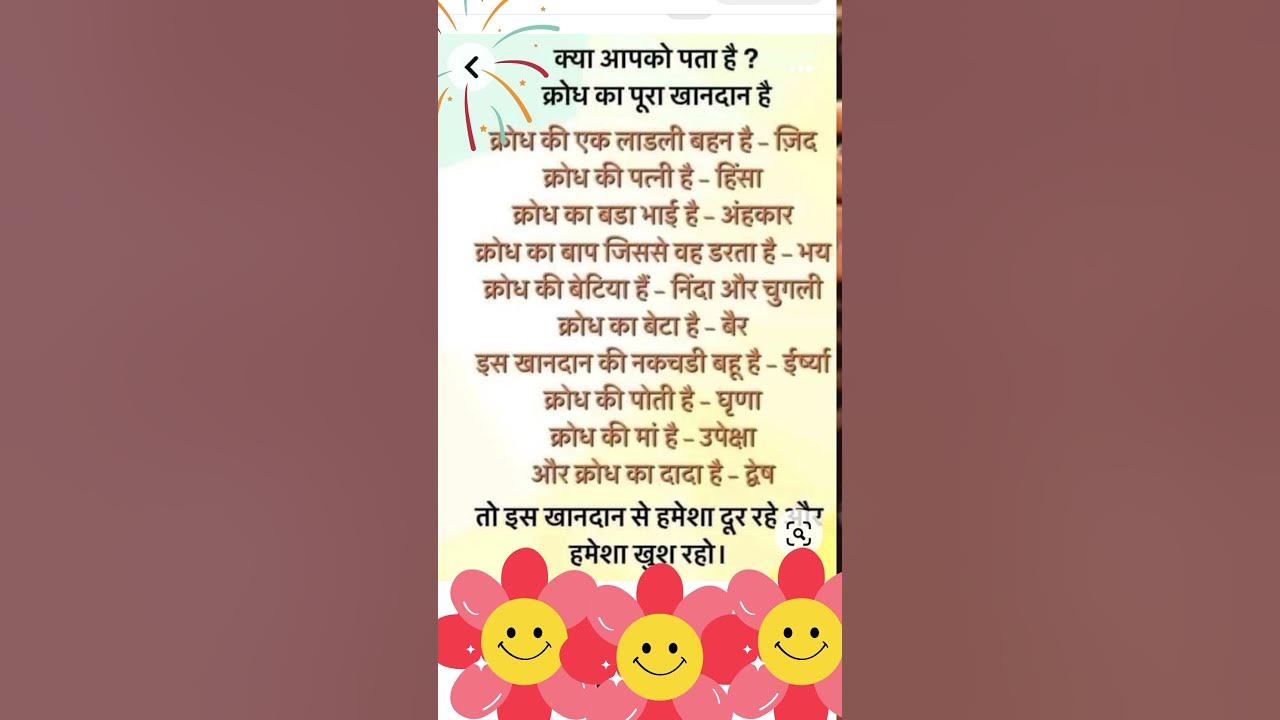 क्या आपको पता है ?
क्रोध का पूरा खानदान है
क्रोध की एक लाडली बहन है – ज़िद
क्रोध की पत्नी है – हिंसा
क्रोध का बडा भाई है – अंहकार
क्रोध का बाप जिससे वह डरता है – भय
क्रोध की बेटिया हैं – निंदा और चुगली
क्रोध का बेटा है – बैर
इस खानदान की नकचडी बहू है – ईर्ष्या
क्रोध की पोती है – घृणा
क्रोध की मां है – उपेक्षा
और क्रोध का दादा है – द्वेष
तो इस खानदान से हमेशा दूर रहे और
हमेशा खुश रहो।